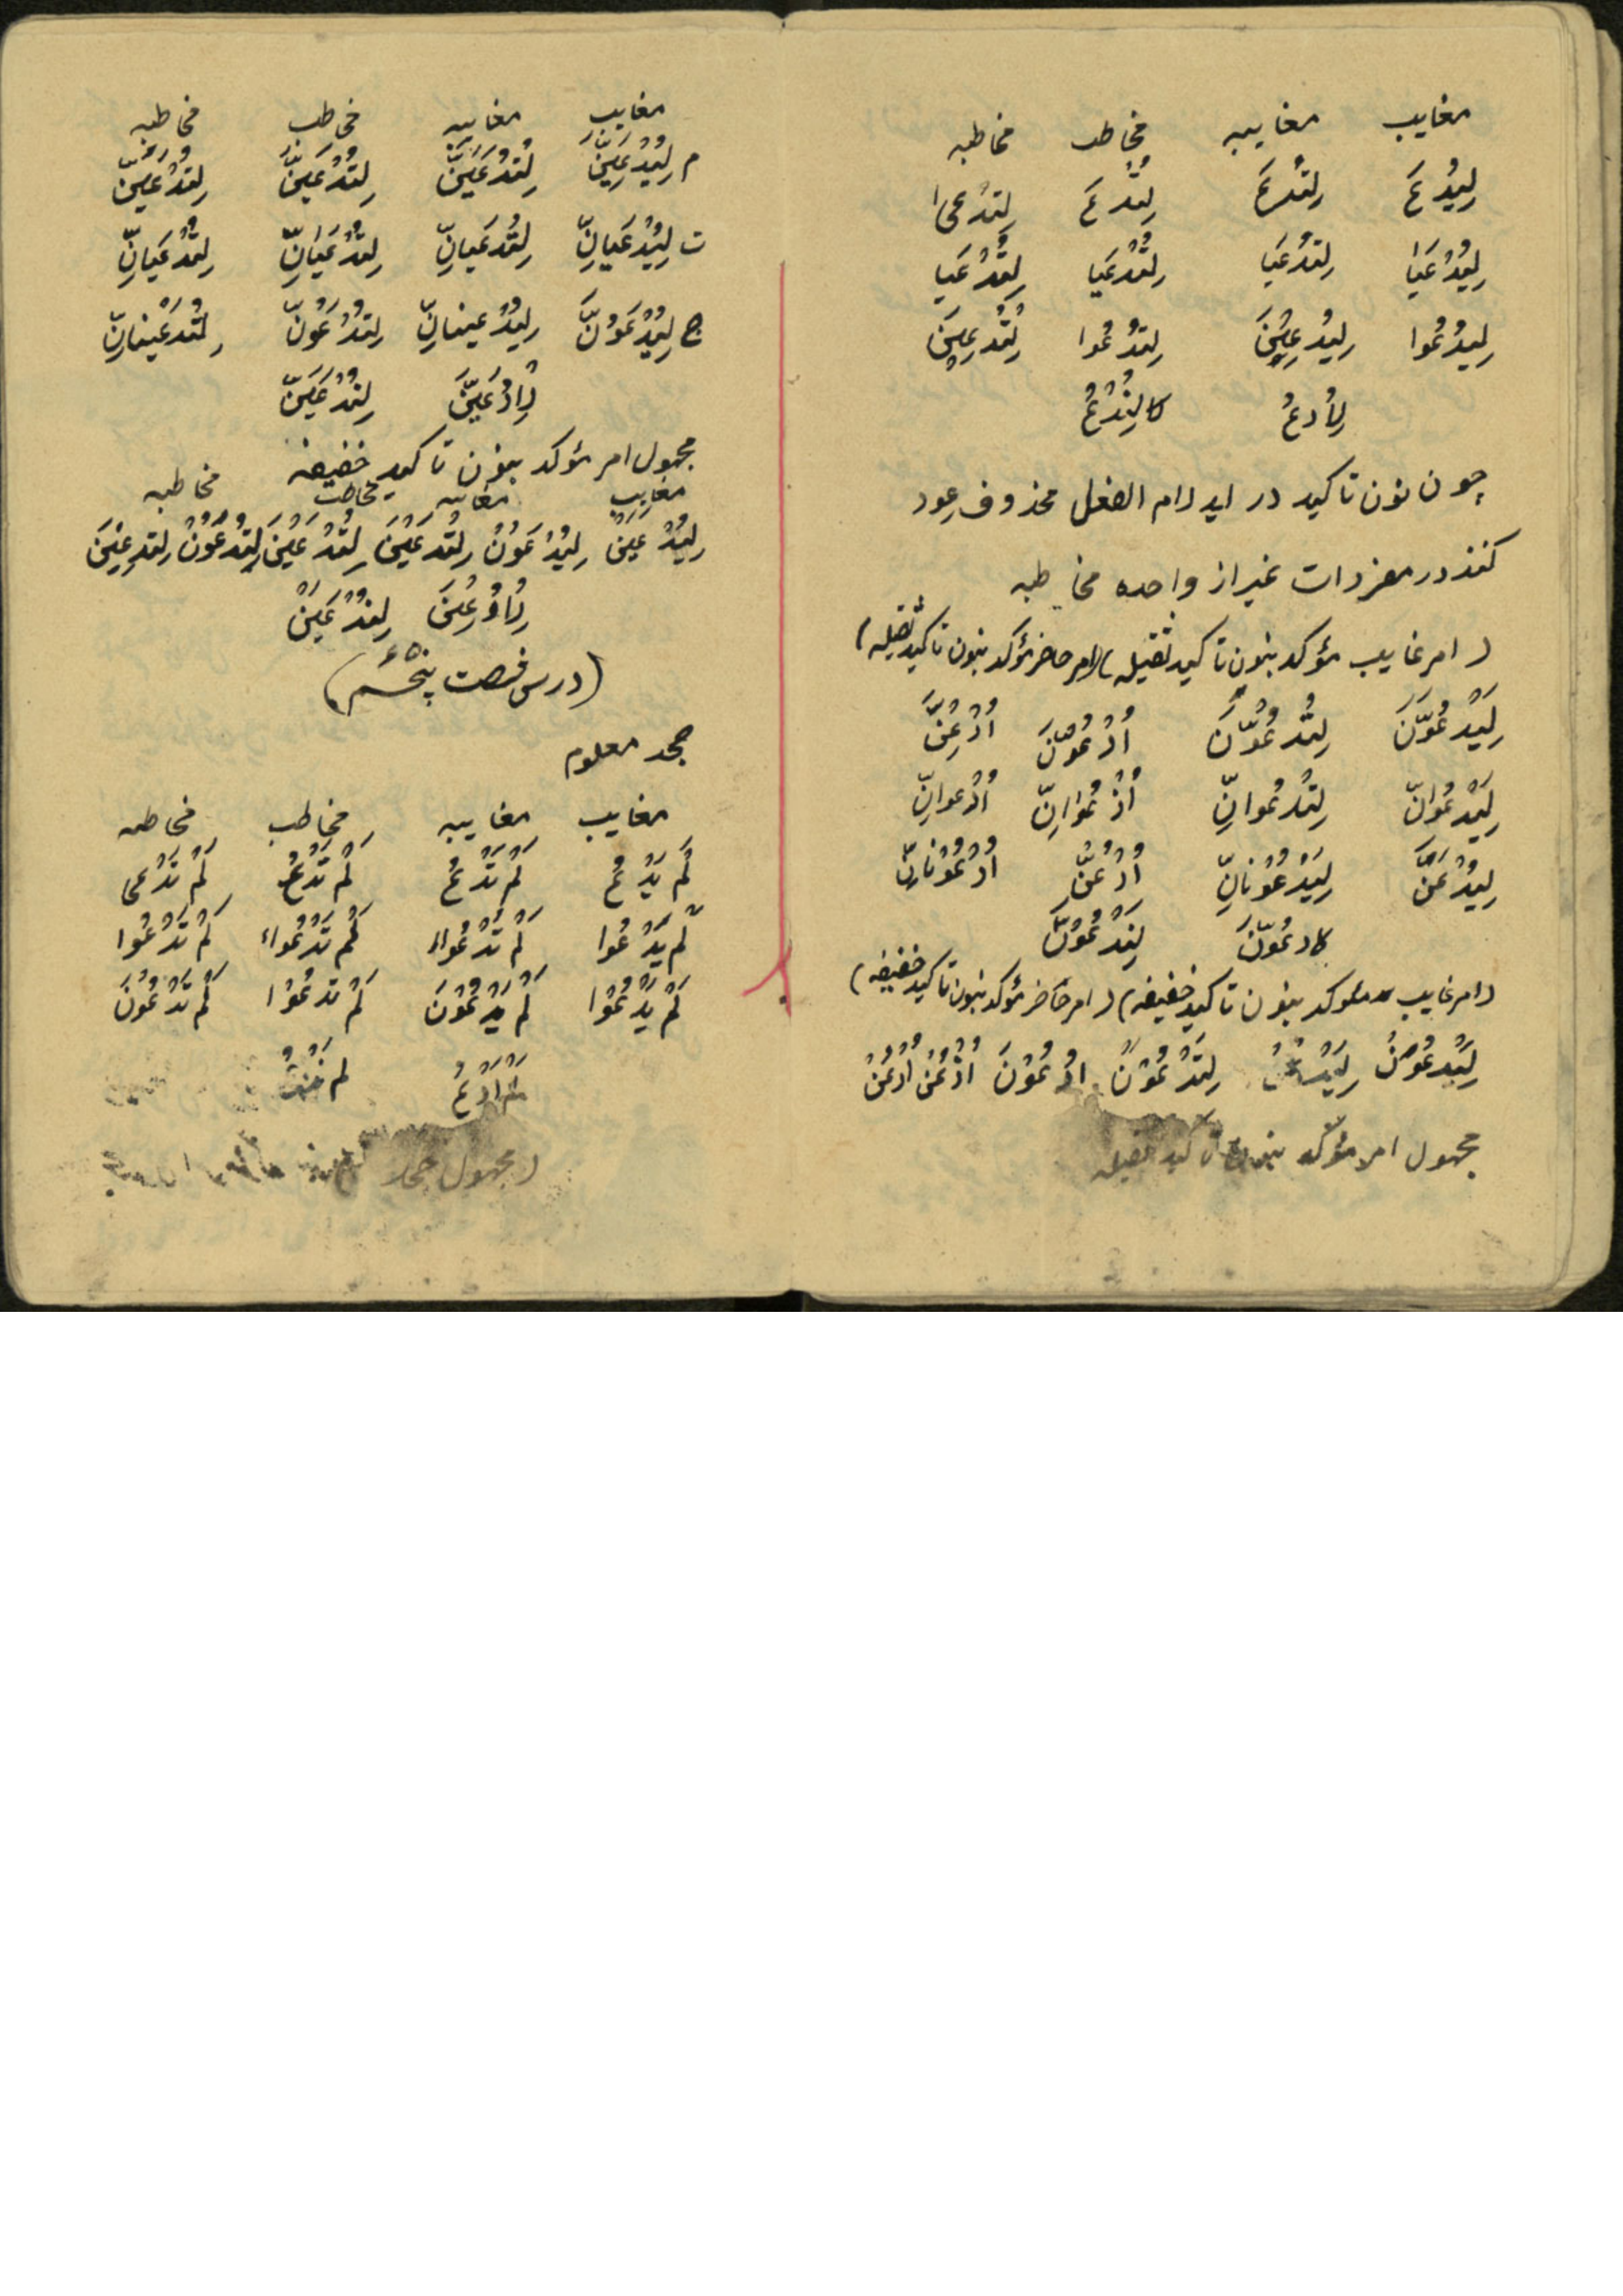 مغایب مغایبه مخاطب مخاطبه
لِیُدْعَ لِتُدْعَ لِتُدْعَ لِتُدْعیٰ
لِیُدْعَیَا لِتُدْعَیَا لِتُدْعَیَا لِتُدْعَیَا
لِیُدْعُوا لِیُدعِیْنَ لِتُدْعُوا لِتُدْعِینَ
لِأُدعُ لِنُدْعُ
چون نون تاکید در اید لام الفعل محذوف عود
کنند در مفردات غیر از واحده مخاطبه
(امر غایب مؤکد بنون تاکید ثقیله) (امر حاضر مؤکد بنون تاکید ثقیله)
لِیَدْعُوَنَّ لِتَدْعُوَنَّ اُدْعُوَنَّ اُدْعِنَّ
لِیَدْعُوَانِّ لِتَدْعُوانِّ اُدْعُوَانِّ اُدْعوانِّ
لِیَدْعُنَّ لِیَدْعُونانِّ اُدْعُنَّ اُدْعُونانِّ
لادعُوَنَّ لِنَدْعُوَنَّ
(امر غایب مؤکد بنون تاکید خفیفه) (امر حاضر مؤکد بنون تاکید خفیفه)
لِیَدْعُوَنْ لِیَدْعُنْ لِتَدْعُوَنْ اُدْعُوَنَ اُدْعُنْ اُدْعُنْ
مجهول امر مؤکد بنون تاکید ثقیله
مغایب مغایبه مخاطب مخاطبه
م لِیُدْعَیَنَّ لِتُدْعَیَنَّ لِتُدْعَیَنَّ لِتُدْعَیِنَّ
ت لِیُدْعَیانِّ لِتُدْعَیانِّ لِتُدْعَیَانِّ لِتُدْعَیَانِّ
ج لِیُدْعَوُنَّ لِیُدْعینانِّ لِتُدْعَوُنَّ لِتُدْعَیْنانِّ
لِاُدْعَیَنَّ لِنُدْعَیَنَّ
مجهول امر مؤکد بنون تاکید خفیفه
مغایب مغایبه مخاطب مخاطبه
لِیُدْعَیَنْ لِیُدْعَوُنْ لِتُدْعَیَنَ لِتُدْعَیَنَ لِتُدْعَوُنْ لِتُدعِیْنَ
لِاُدْعِیَنَ لِنُدْعَیَنْ
(درس فصت پنجٌم)
جحد معلوم
مغایب مغایبه مخاطب مخاطبه
لَمْ یَدْعُ لَمْ تَدْعُ لَمْ تَدْعُ لَمْ تَدْعی
لَمْ یَدْعُوا لَمْ تَدْعُوا لَمْ تَدْعُوا لَمْ تَدْعُوا
لَمْ یَدْعُوْا لَمْ یَدْعُوْنَ لَمْ تَدعُوْا لَمْ تَدْعُوْنَ
لَمْ اَدْعُ لم
(مجهول جحد